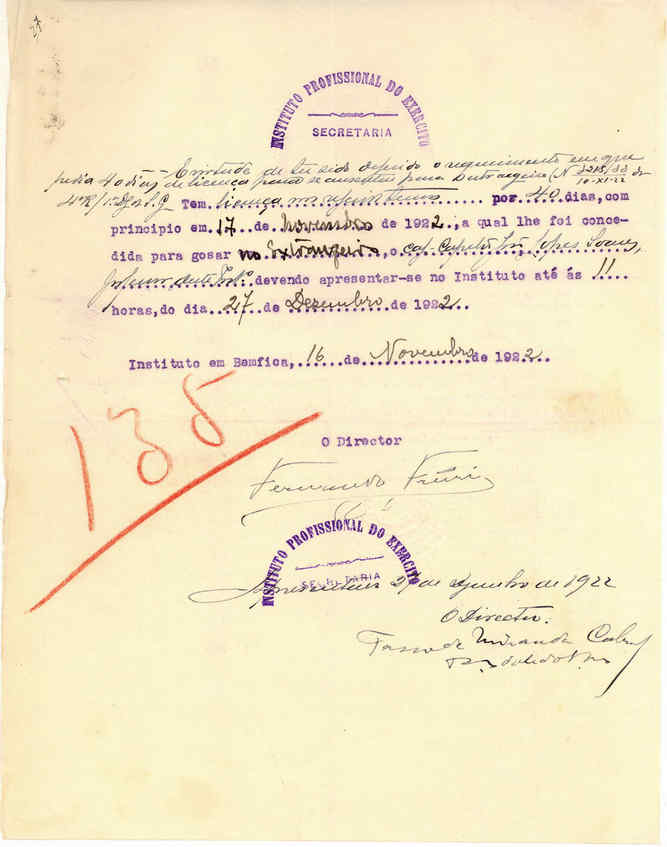 27
INSTITUTO PROFISSIONAL DO EXERCITO
SECRETARIA
Em virtude de ter sido deferido o requerimento em que
pedia 40 dias de licença para se ausentar para o estrangeiro (Nº 3215/33
10-XI-22 da
4ªR/1ªD/ Tem licença por 40 dias, com
principio em 17 de Novembro de 1922., a qual lhe foi conce-
dida para gosar no Extrangeiro, o Lopes Soares,
professor deste Instº devendo apresentar-se no Instituto até ás 11
horas, do dia 27 de Dezembro de 1922
Instituto em Bemfica, 16 de Novembro de 1922
135
O Director
Fernando Freiria
INSTITUTO PROFISSIONAL DO EXERCITO
SECRETARIA
Apresentou 27 de de 1922
O Director.
de Miranda Cabral